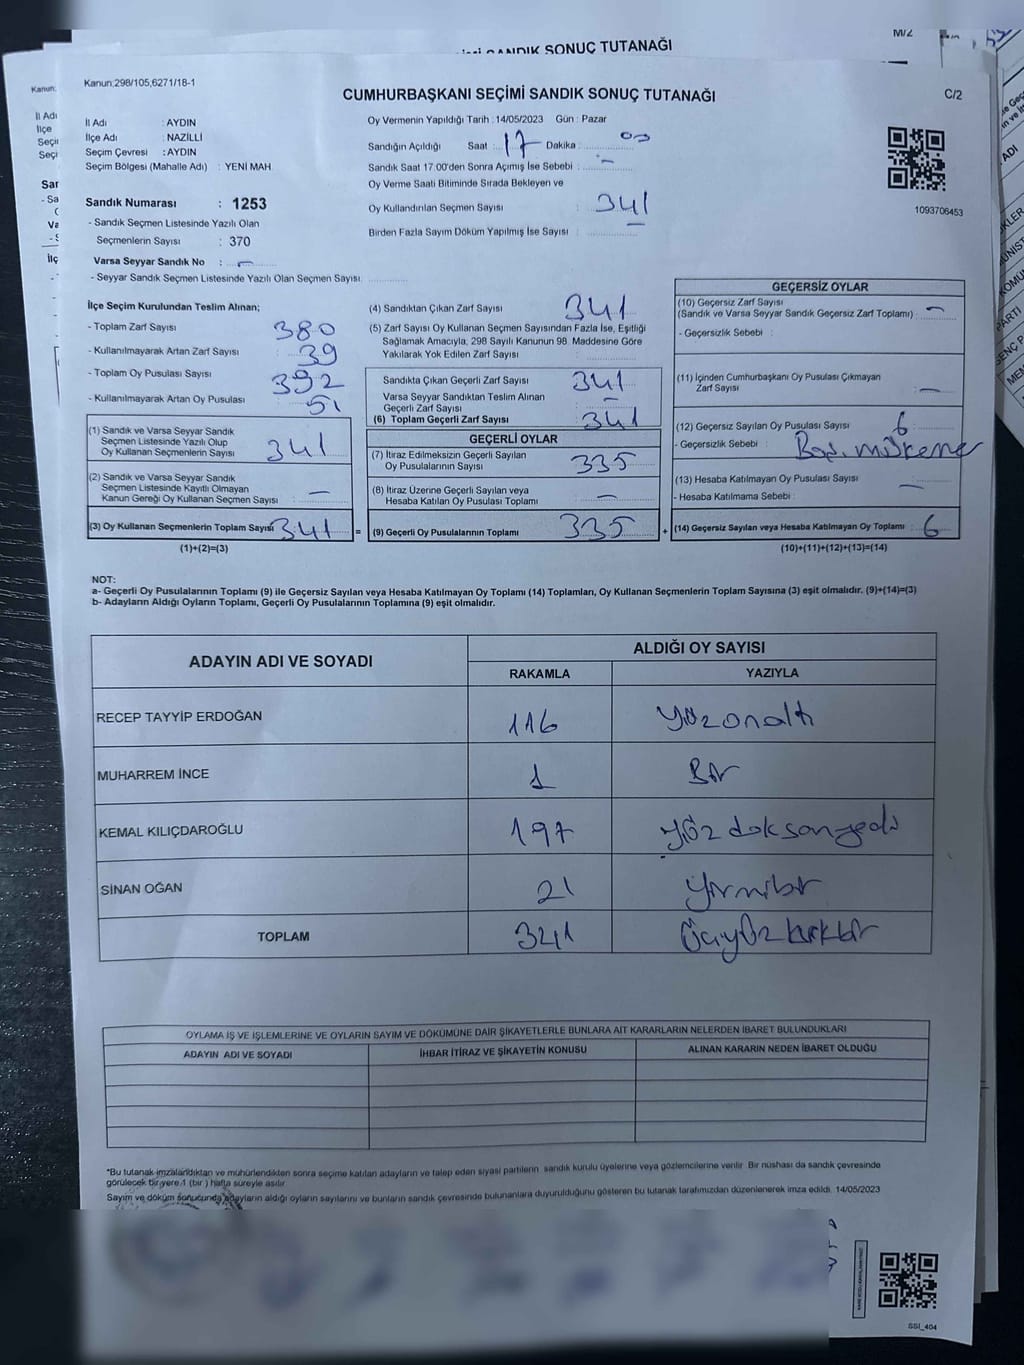 M/2
SANDIK SONUÇ TUTANAĞI
Kanun:298/105,6271/18-1
CUMHURBAŞKANI SEÇİMİ SANDIK SONUÇ TUTANAĞI
C/2
İl Adı : AYDIN
İlçe Adı : NAZİLLİ
Seçim Çevresi : AYDIN
Seçim Bölgesi (Mahalle Adı) : YENİ MAH
Oy Vermenin Yapıldığı Tarih : 14/05/2023 Gün : Pazar
Sandığın Açıldığı Saat : 17 Dakika : 00
Sandık Saat 17:00'den Sonra Açımış İse Sebebi : -
Oy Verme Saati Bitiminde Sırada Bekleyen ve
Oy Kullandırılan Seçmen Sayısı : 341
Birden Fazla Sayım Döküm Yapılmış İse Sayısı :
1093706453
Sandık Numarası : 1253
- Sandık Seçmen Listesinde Yazılı Olan
Seçmenlerin Sayısı : 370
Varsa Seyyar Sandık No : -
- Seyyar Sandık Seçmen Listesinde Yazılı Olan Seçmen Sayısı:
İlçe Seçim Kurulundan Teslim Alınan;
- Toplam Zarf Sayısı : 380
- Kullanılmayarak Artan Zarf Sayısı : 39
- Toplam Oy Pusulası Sayısı : 392
- Kullanılmayarak Artan Oy Pusulası : 51
(1) Sandık ve Varsa Seyyar Sandık
Seçmen Listesinde Yazılı Olup
Oy Kullanan Seçmenlerin Sayısı : 341
(2) Sandık ve Varsa Seyyar Sandık
Seçmen Listesinde Kayıtlı Olmayan
Kanun Gereği Oy Kullanan Seçmen Sayısı : -
(3) Oy Kullanan Seçmenlerin Toplam Sayısı : 341
(1)+(2)=(3)
(4) Sandıktan Çıkan Zarf Sayısı : 341
(5) Zarf Sayısı Oy Kullanan Seçmen Sayısından Fazla İse, Eşitliği
Sağlamak Amacıyla; 298 Sayılı Kanunun 98. Maddesine Göre
Yakılarak Yok Edilen Zarf Sayısı :
Sandıkta Çıkan Geçerli Zarf Sayısı : 341
Varsa Seyyar Sandıktan Teslim Alınan
Geçerli Zarf Sayısı : -
(6) Toplam Geçerli Zarf Sayısı : 341
GEÇERLİ OYLAR
(7) İtiraz Edilmeksizin Geçerli Sayılan
Oy Pusulalarının Sayısı : 335
(8) İtiraz Üzerine Geçerli Sayılan veya
Hesaba Katılan Oy Pusulası Toplamı : -
= (9) Geçerli Oy Pusulalarının Toplamı : 335
GEÇERSİZ OYLAR
(10) Geçersiz Zarf Sayısı
(Sandık ve Varsa Seyyar Sandık Geçersiz Zarf Toplamı) : -
- Geçersizlik Sebebi :
(11) İçinden Cumhurbaşkanı Oy Pusulası Çıkmayan
Zarf Sayısı : -
(12) Geçersiz Sayılan Oy Pusulası Sayısı : 6
- Geçersizlik Sebebi :
(13) Hesaba Katılmayan Oy Pusulası Sayısı : -
- Hesaba Katılmama Sebebi :
+ (14) Geçersiz Sayılan veya Hesaba Katılmayan Oy Toplamı : 6
(10)+(11)+(12)+(13)=(14)
NOT:
a- Geçerli Oy Pusulalarının Toplamı (9) ile Geçersiz Sayılan veya Hesaba Katılmayan Oy Toplamı (14) Toplamları, Oy Kullanan Seçmenlerin Toplam Sayısına (3) eşit olmalıdır. (9)+(14)=(3)
b- Adayların Aldığı Oyların Toplamı, Geçerli Oy Pusulalarının Toplamına (9) eşit olmalıdır.
ADAYIN ADI VE SOYADI
ALDIĞI OY SAYISI
RAKAMLA YAZIYLA
RECEP TAYYİP ERDOĞAN 116 Yüzonaltı
MUHARREM İNCE 1 Bir
KEMAL KILIÇDAROĞLU 197 yüz doksanyedi
SİNAN OĞAN 21 Yirmibir
TOPLAM 341 Üçyüzkırkbir
OYLAMA İŞ VE İŞLEMLERİNE VE OYLARIN SAYIM VE DÖKÜMÜNE DAİR ŞİKAYETLERLE BUNLARA AİT KARARLARIN NELERDEN İBARET BULUNDUKLARI
ADAYIN ADI VE SOYADI İHBAR İTİRAZ VE ŞİKAYETİN KONUSU ALINAN KARARIN NEDEN İBARET OLDUĞU
*Bu tutanak imzalandıktan ve mühürlendikten sonra seçime katılan adayların ve talep eden siyasi partilerin sandık kurulu üyelerine veya gözlemcilerine verilir. Bir nüshası da sandık çevresinde
görülecek bir yere 1 (bir ) hafta süreyle asılır.
Sayım ve döküm sonucunda adayların aldığı oyların sayılarını ve bunların sandık çevresinde bulunanlara duyurulduğunu gösteren bu tutanak tarafımızdan düzenlenerek imza edildi. 14/05/2023
SSI_404